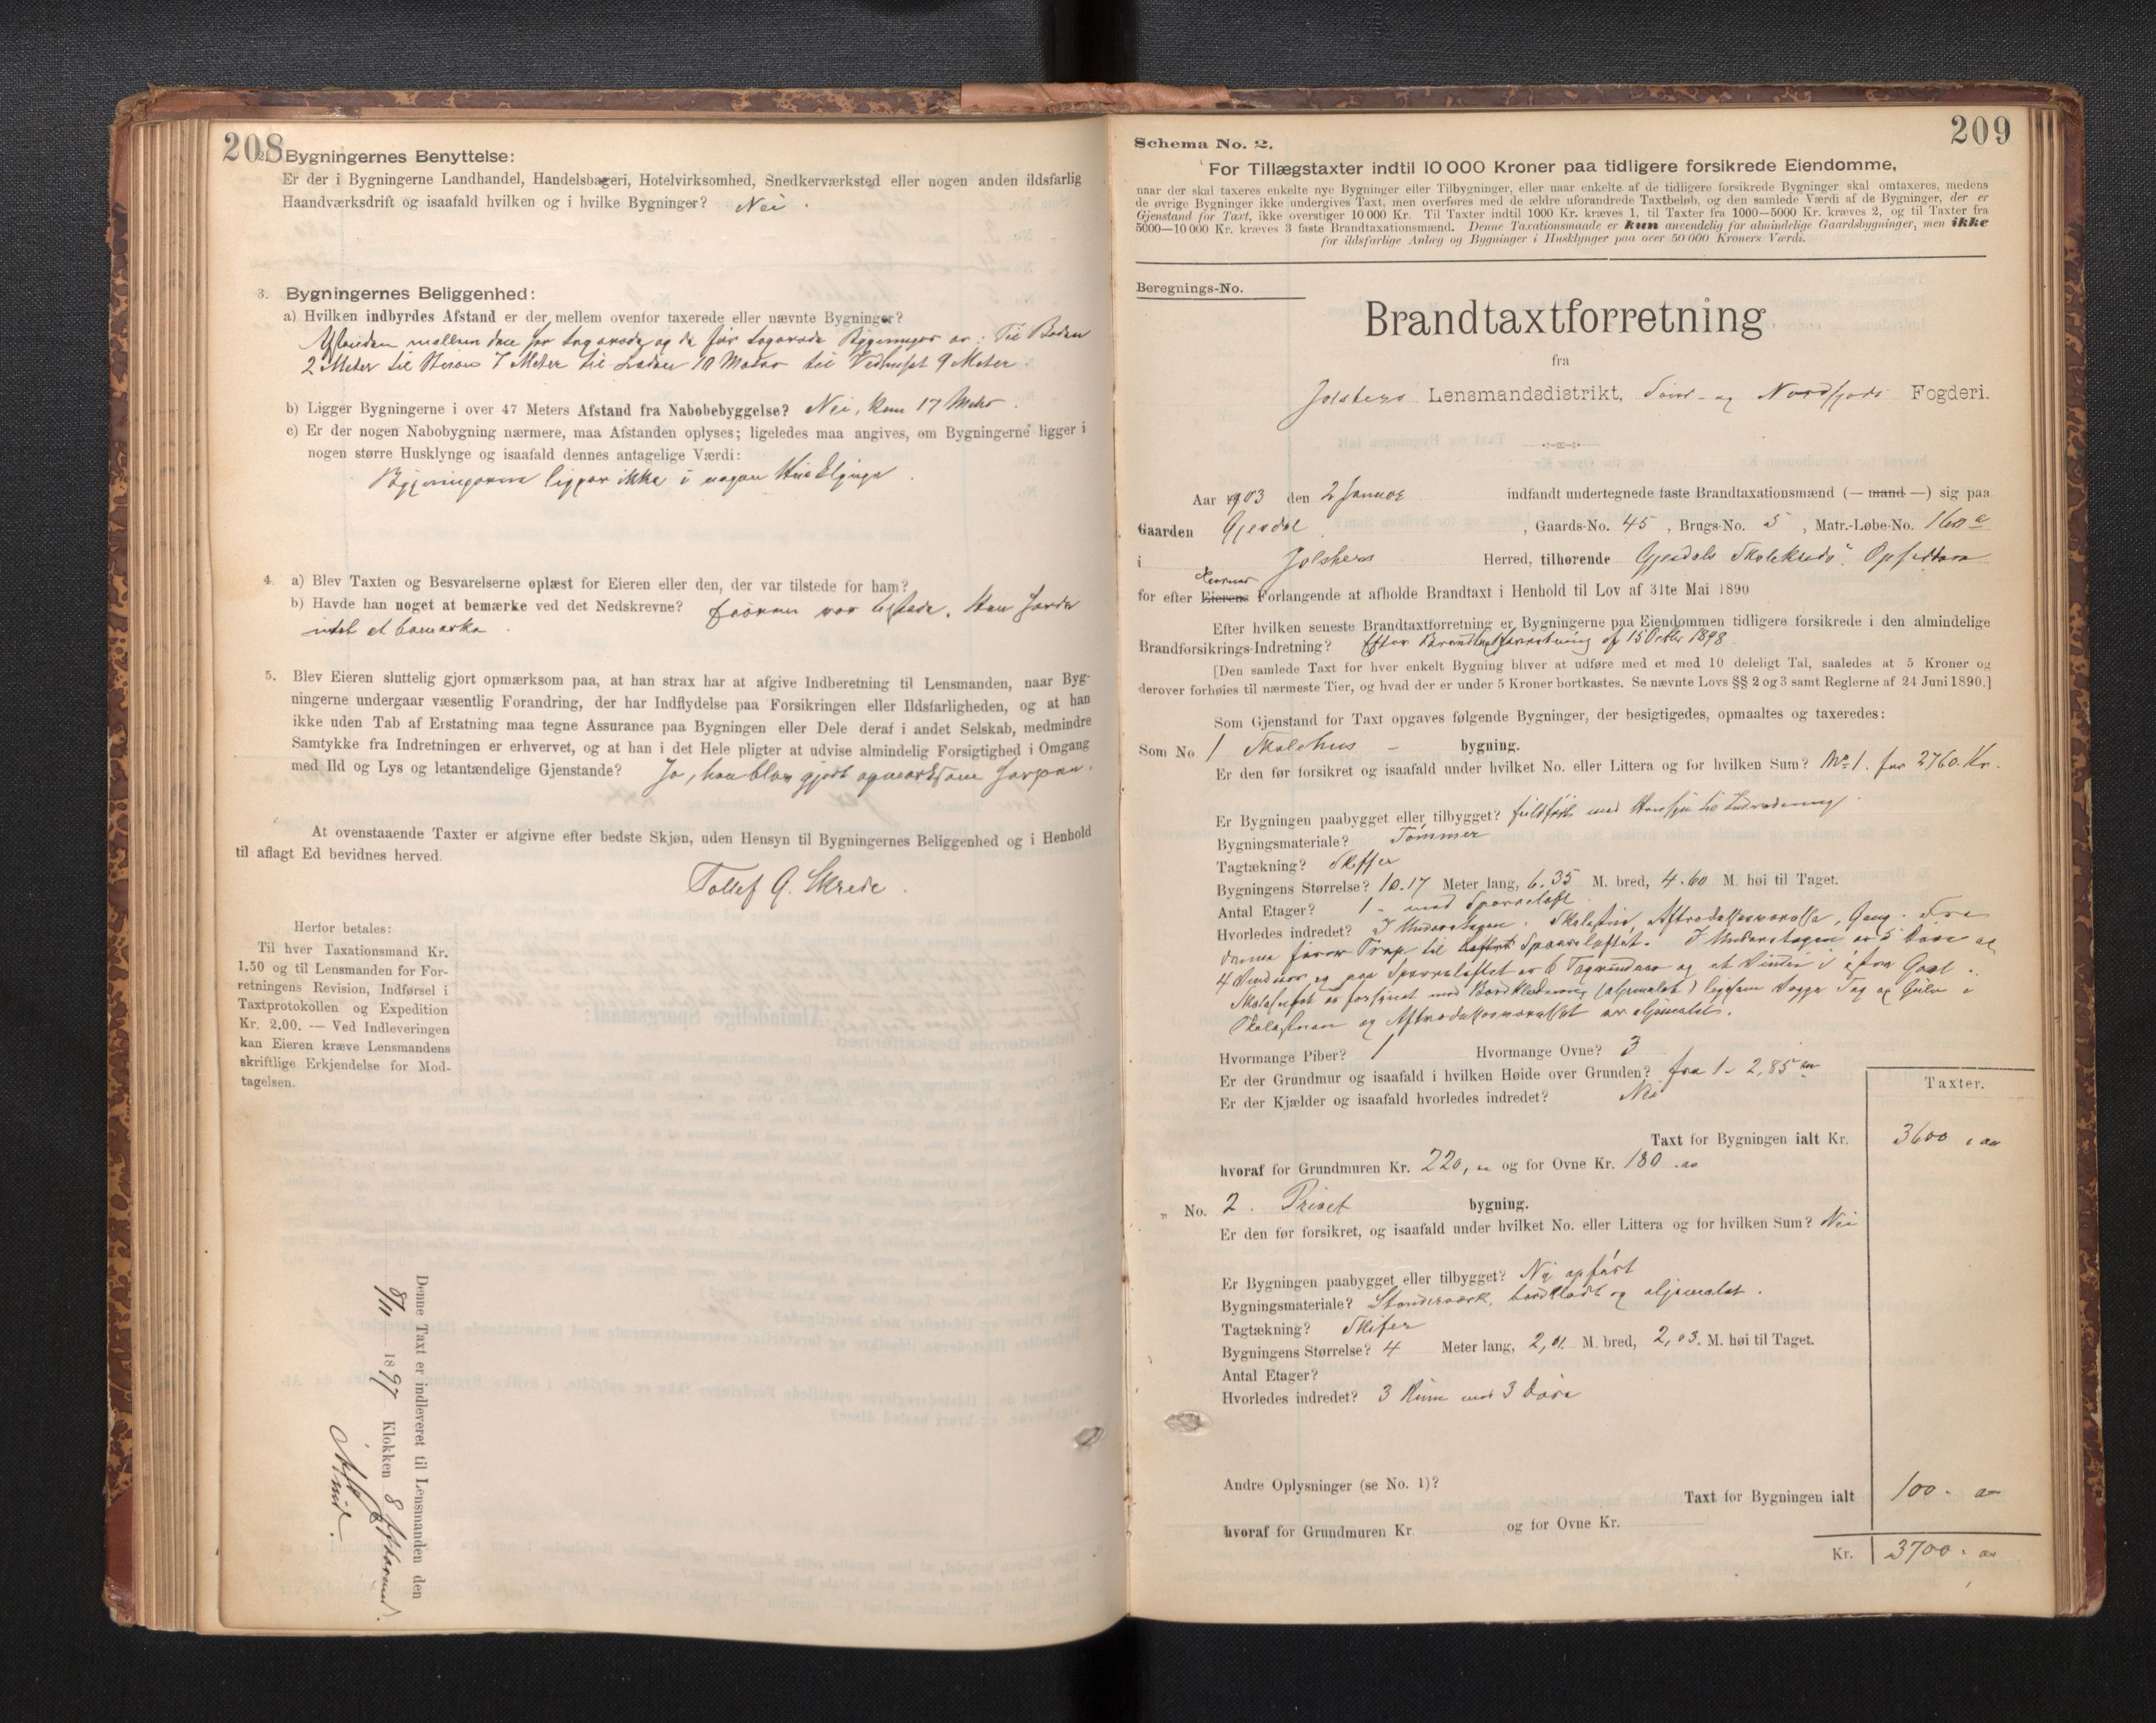 208
2. Bygningernes Benyttelse:
Er der i Bygningerne Landhandel, Handelsbageri, Hotelvirksomhed, Snedkerværksted eller nogen anden ildsfarlig
Haandværksdrift og isaafald hvilken og i hvilke Bygninger? Nei.
3. Bygningernes Beliggenhed:
a) Hvilken indbyrdes Afstand er der mellem ovenfor taxerede eller nævnte Bygninger?
Afstanden mellem den her og de før Bygninger er: Til Boden
2 Meter til 7 Meter til Laden 10 Meter til Vedhuset 9 Meter.
b) Ligger Bygningerne i over 47 Meters Afstand fra Nabobebyggelse? Nei, kun 17 Meter.
c) Er der nogen Nabobygning nærmere, maa Afstanden oplyses; ligeledes maa angives, om Bygningerne ligger i
nogen større Husklynge og isaafald dennes antagelige Værdi:
Bygningerne ligger ikke i nogen Husklynge.
4. a) Blev Taxten og Besvarelserne oplæst for Eieren eller den, der var tilstede for ham?
b) Havde han noget at bemærke ved det Nedskrevne? Eieren var tilstede. Han havde
intet at bemærke.
5. Blev Eieren sluttelig gjort opmærksom paa, at han strax har at afgive Indberetning til Lensmanden, naar Byg-
ningerne undergaar væsentlig Forandring, der har Indflydelse paa Forsikringen eller Ildsfarligheden, og at han
ikke uden Tab af Erstatning maa tegne Assurance paa Bygningen eller Dele deraf i andet Selskab, medmindre
Samtykke fra Indretningen er erhvervet, og at han i det Hele pligter at udvise almindelig Forsigtighed i Omgang
med Ild og Lys og letantændelige Gjenstande? Ja, han blev gjort opmærksom herpaa.
At ovenstaaende Taxter er afgivne efter bedste Skjøn, uden Hensyn til Bygningernes Beliggenhed og i Henhold
til aflagt Ed bevidnes herved.
Tollef G. Skrede.
Herfor betales:
Til hver Taxationsmand Kr.
1.50 og til Lensmanden for For-
retningens Revision, Indførsel i
Taxtprotokollen og Expedition
Kr. 2.00. — Ved Indleveringen
kan Eieren kræve Lensmandens
skriftlige Erkjendelse for Mod-
tagelsen.
Denne Taxt er indleveret til Lensmanden den
8/11 1897 Klokken 8 Eftermid.
209
Schema No. 2.
For Tillægstaxter indtil 10 000 Kroner paa tidligere forsikrede Eiendomme,
naar der skal taxeres enkelte nye Bygninger eller Tilbygninger, eller naar enkelte af de tidligere forsikrede Bygninger skal omtaxeres, medens
de øvrige Bygninger ikke undergives Taxt, men overføres med de ældre uforandrede Taxtbeløb, og den samlede Værdi af de Bygninger, der er
Gjenstand for Taxt, ikke overstiger 10 000 Kr. Til Taxter indtil 1000 Kr. kræves 1, til Taxter fra 1000—5000 Kr. kræves 2, og til Taxter fra
5000—10 000 Kr. kræves 3 faste Brandtaxationsmænd. Denne Taxationsmaade er kun anvendelig for almindelige Gaardsbygninger, men ikke
for ildsfarlige Anlæg og Bygninger i Husklynger paa over 50 000 Kroners Værdi.
Beregnings-No.
Brandtaxtforretning
fra
Jølsters Lensmandsdistrikt, Sønd- og Nordfjords Fogderi.
Aar 1903 den 2 Januar indfandt undertegnede faste Brandtaxationsmænd (— mand —) sig paa
Gaarden Gjesdal, Gaards-No. 45, Brugs-No. 5, Matr.-Løbe-No. 160 a
i Jølsters Herred, tilhørende Gjesdals Skolekreds. Opsidderne
for efter Eierens Forlangende at afholde Brandtaxt i Henhold til Lov af 31te Mai 1890
Efter hvilken seneste Brandtaxtforretning er Bygningerne paa Eiendommen tidligere forsikrede i den almindelige
Brandforsikrings-Indretning? Efter Brandtaxtforretning af 15 Octbr 1898.
[Den samlede Taxt for hver enkelt Bygning bliver at udføre med et med 10 deleligt Tal, saaledes at 5 Kroner og
derover forhøies til nærmeste Tier, og hvad der er under 5 Kroner bortkastes. Se nævnte Lovs §§ 2 og 3 samt Reglerne af 24 Juni 1890.]
Som Gjenstand for Taxt opgaves følgende Bygninger, der besigtigedes, opmaaltes og taxeredes:
Som No 1 Skolehus - bygning.
Er den før forsikret og isaafald under hvilket No. eller Littera og for hvilken Sum? No 1. for 2760. Kr.
Er Bygningen paabygget eller tilbygget? fuldført med Hensyn til Indredning.
Bygningsmateriale? Tømmer
Tagtækning? Skiffer
Bygningens Størrelse? 10.17 Meter lang, 6.35 M. bred, 4.60 M. høi til Taget.
Antal Etager? 1 - med Sparreloft
Hvorledes indredet? I Underetagen. Skolestue, Aftrædelsesværelse, Gang. Fra
denne fører Trap til Loftet Sparreloftet. I Underetagen er 5 Døre og
4 Vinduer og paa Sparreloftet er 6 Tagvinduer og et Vindu i Gavl.
Skolehuset er forsynet med Bordklædning (oljemalet) ligesom Vægge Tag og Gulv i
Skolestuen og Aftrædelsesværelset er oljemalet.
Hvormange Piber? 1 Hvormange Ovne? 3
Er der Grundmur og isaafald i hvilken Høide over Grunden? fra 1 - 2,85 m
Er der Kjælder og isaafald hvorledes indredet? Nei
Taxter.
Taxt for Bygningen ialt Kr. 3600
hvoraf for Grundmuren Kr. 220, og for Ovne Kr. 180
" No. 2. Privet bygning.
Er den før forsikret, og isaafald under hvilket No. eller Littera og for hvilken Sum? Nei
Er Bygningen paabygget eller tilbygget? Ny opført
Bygningsmateriale? Stenderværk, bordklædt og oljemalet.
Tagtækning? Skifer
Bygningens Størrelse? 4 Meter lang, 2,01 M. bred, 2,03. M. høi til Taget.
Antal Etager?
Hvorledes indredet? 3 Rum med 3 Døre
Andre Oplysninger (se No. 1)?
Taxt for Bygningen ialt 100.
hvoraf for Grundmuren Kr. og for Ovne Kr.
Kr. 3700.